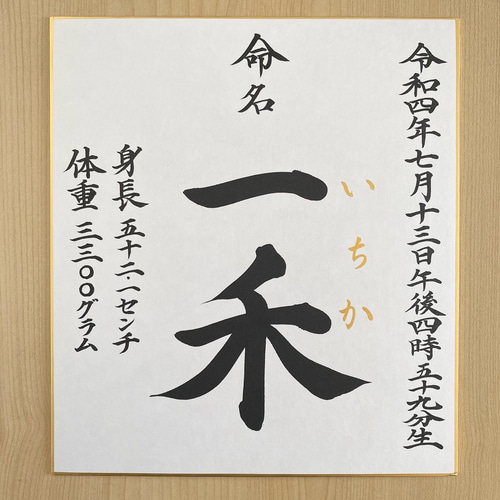 令和四年七月十三日午後四時五十九分生
命名
いちか
一禾
身長 五十二・一センチ
体重 三三〇〇グラム